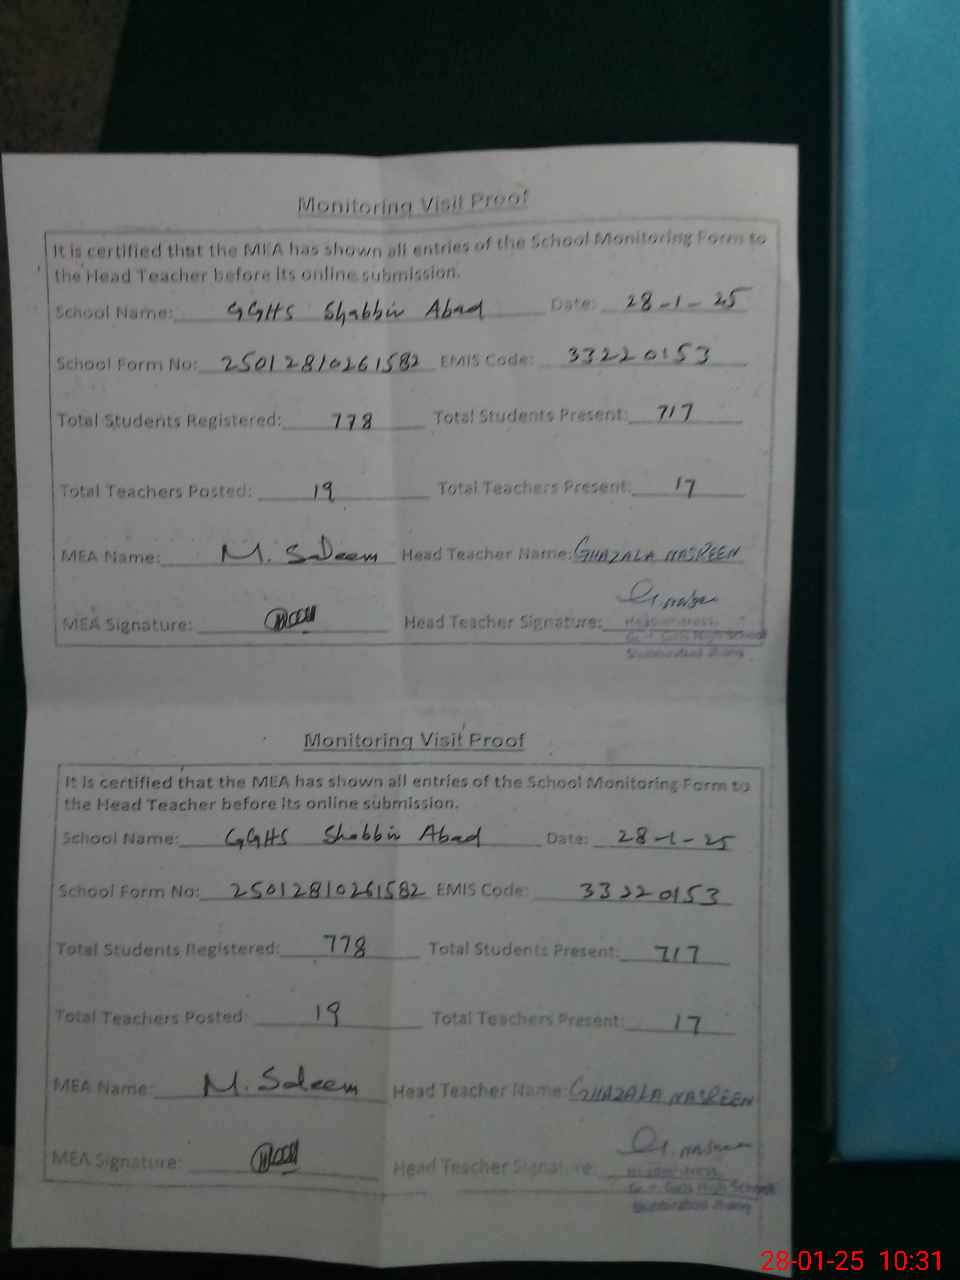 Monitoring Visit Proof
It is certified that the MEA has shown all entries of the School Monitoring Form to
the Head Teacher before its online submission.
School Name: GGHS Shabbir Abad Date: 28-1-25
School Form No: 25012810261582 EMIS Code: 33220153
Total Students Registered: 778 Total Students Present: 717
Total Teachers Posted: 19 Total Teachers Present: 17
MEA Name: M. Saleem Head Teacher Name: GHAZALA NASREEN
MEA Signature: Head Teacher Signature:
Headmistress
Govt. Girls High School
Shabbirabad Jhang
Monitoring Visit Proof
It is certified that the MEA has shown all entries of the School Monitoring Form to
the Head Teacher before its online submission.
School Name: GGHS Shabbir Abad Date: 28-1-25
School Form No: 25012810261582 EMIS Code: 33220153
Total Students Registered: 778 Total Students Present: 717
Total Teachers Posted: 19 Total Teachers Present: 17
MEA Name: M. Saleem Head Teacher Name: GHAZALA NASREEN
MEA Signature: Head Teacher Signature:
Headmistress
Govt. Girls High School
Shabbirabad Jhang
28-01-25 10:31